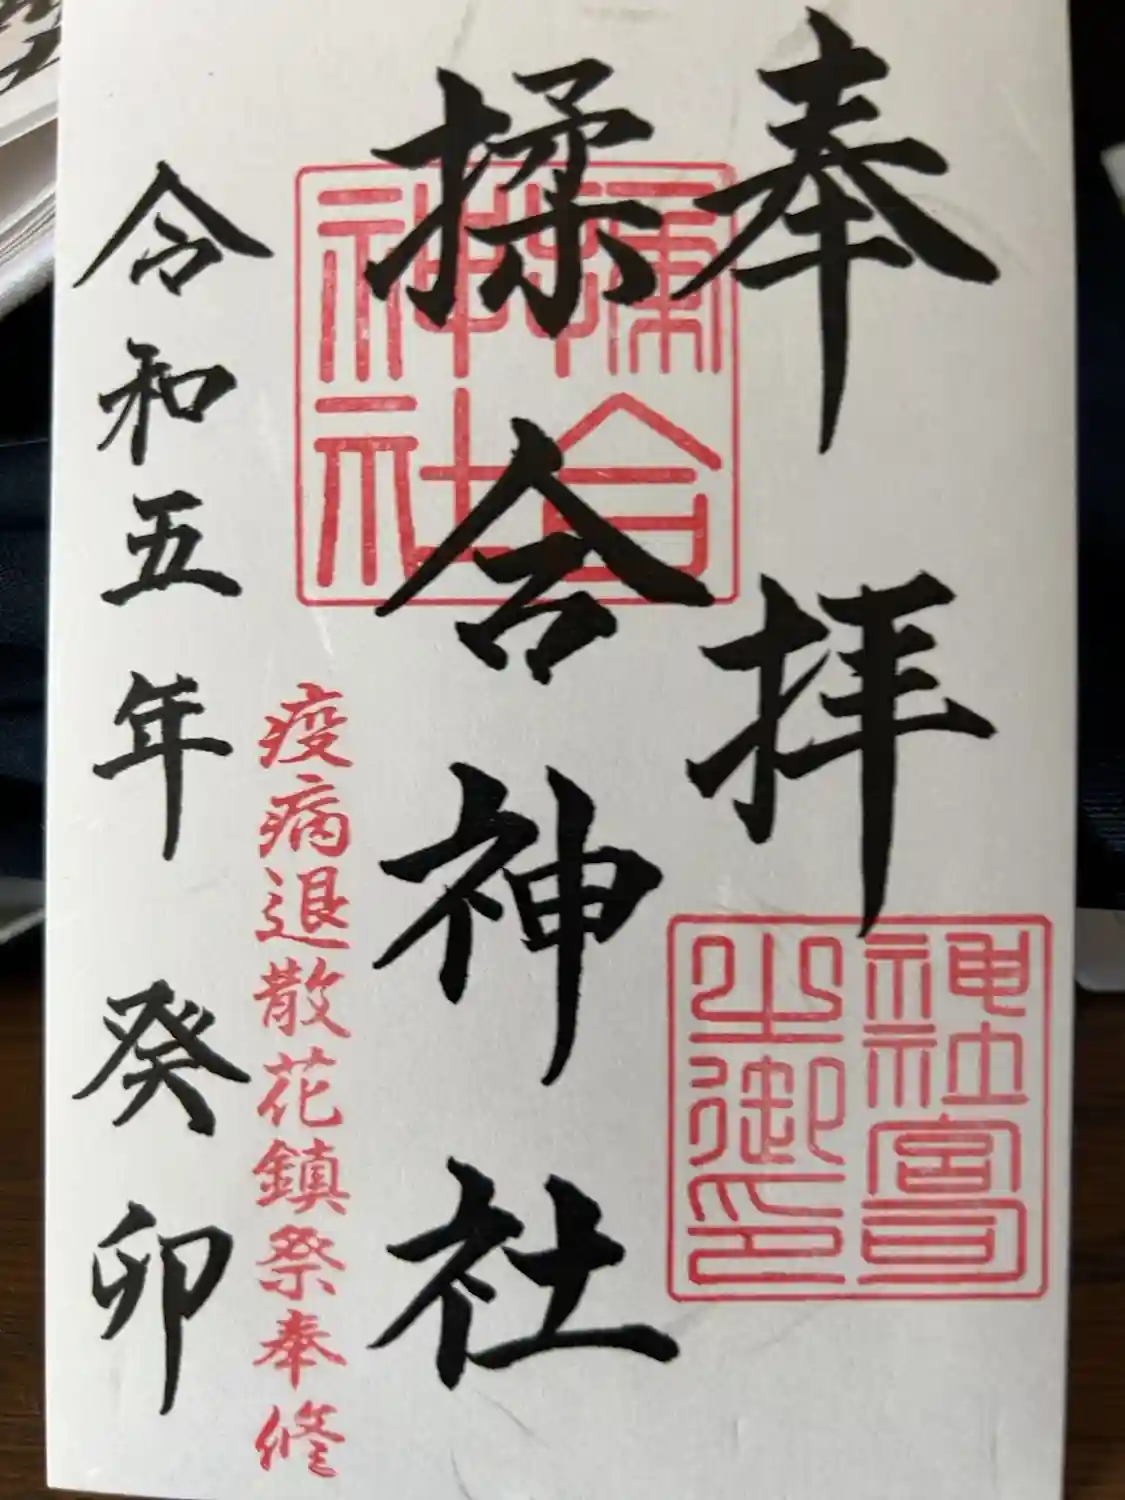 奉拝
揉合神社
揉合神社
神社宮司之御印
疫病退散花鎮祭奉修
令和五年 癸卯